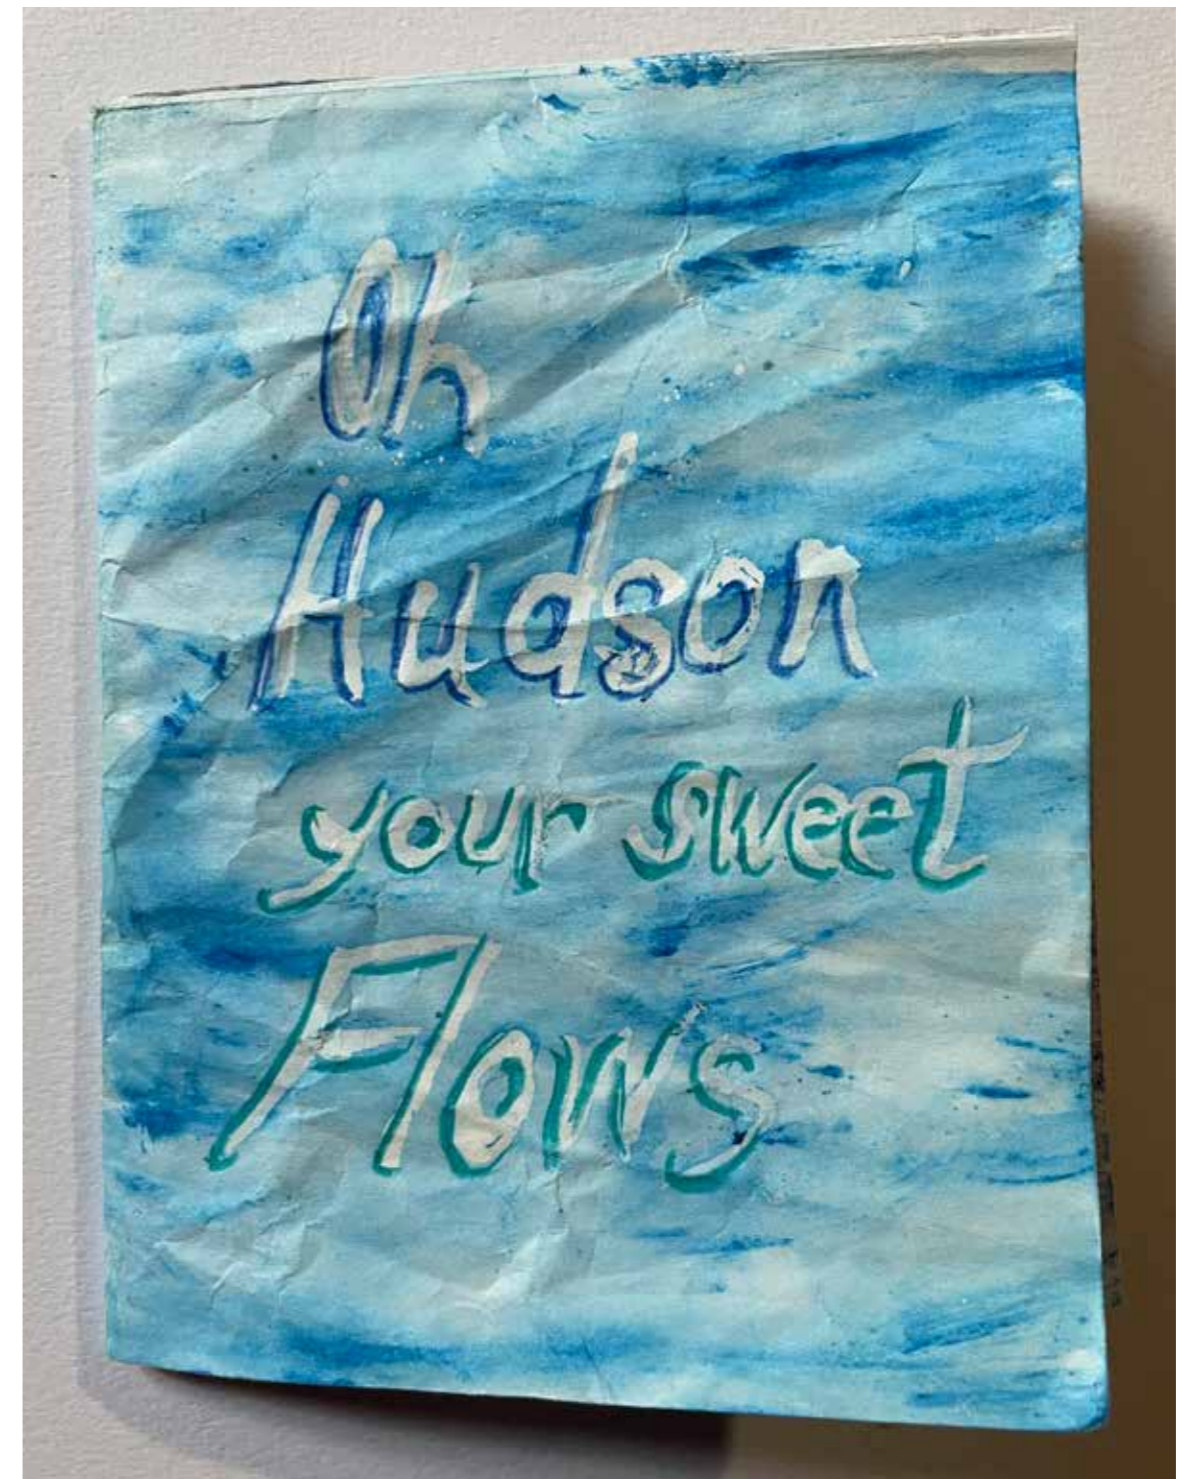 Oh
Hudson
your sweet
Flows